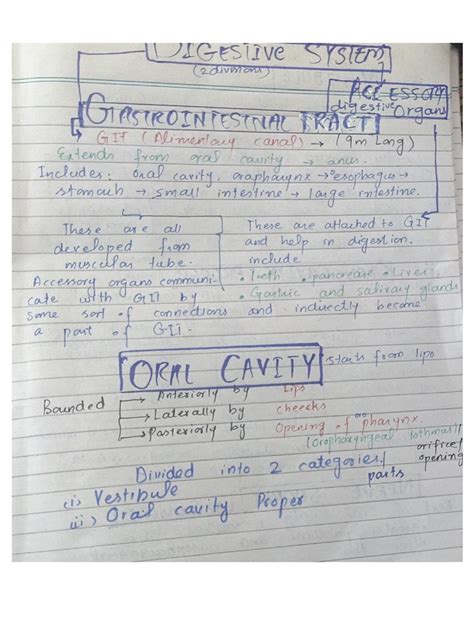 DIGESTIVE SYSTEM
(2 divisions)
ACCESSORY
digestive Organs
GASTROINTESTINAL TRACT
GIT (Alimentary canal) → (9m Long)
Extends from oral cavity → anus.
Includes: oral cavity, oropharynx → oesophagus →
stomach → small intestine → large intestine.
These are all
developed from
muscular tube.
Accessory organs communi-
cate with GIT by
some sort of connections and indirectly become
a part of GIT.
These are attached to GIT
and help in digestion.
include
• Teeth • pancrease • liver
• Gastric and salivary glands
ORAL CAVITY starts from lips
Bounded
→ Anteriorly by Lips
→ Laterally by cheeks
→ Posteriorly by Opening of oropharynx
(Oropharyngeal isthmus)
orifice/
opening
Divided into 2 categories/
parts
(i) Vestibule
ii) Oral cavity Proper